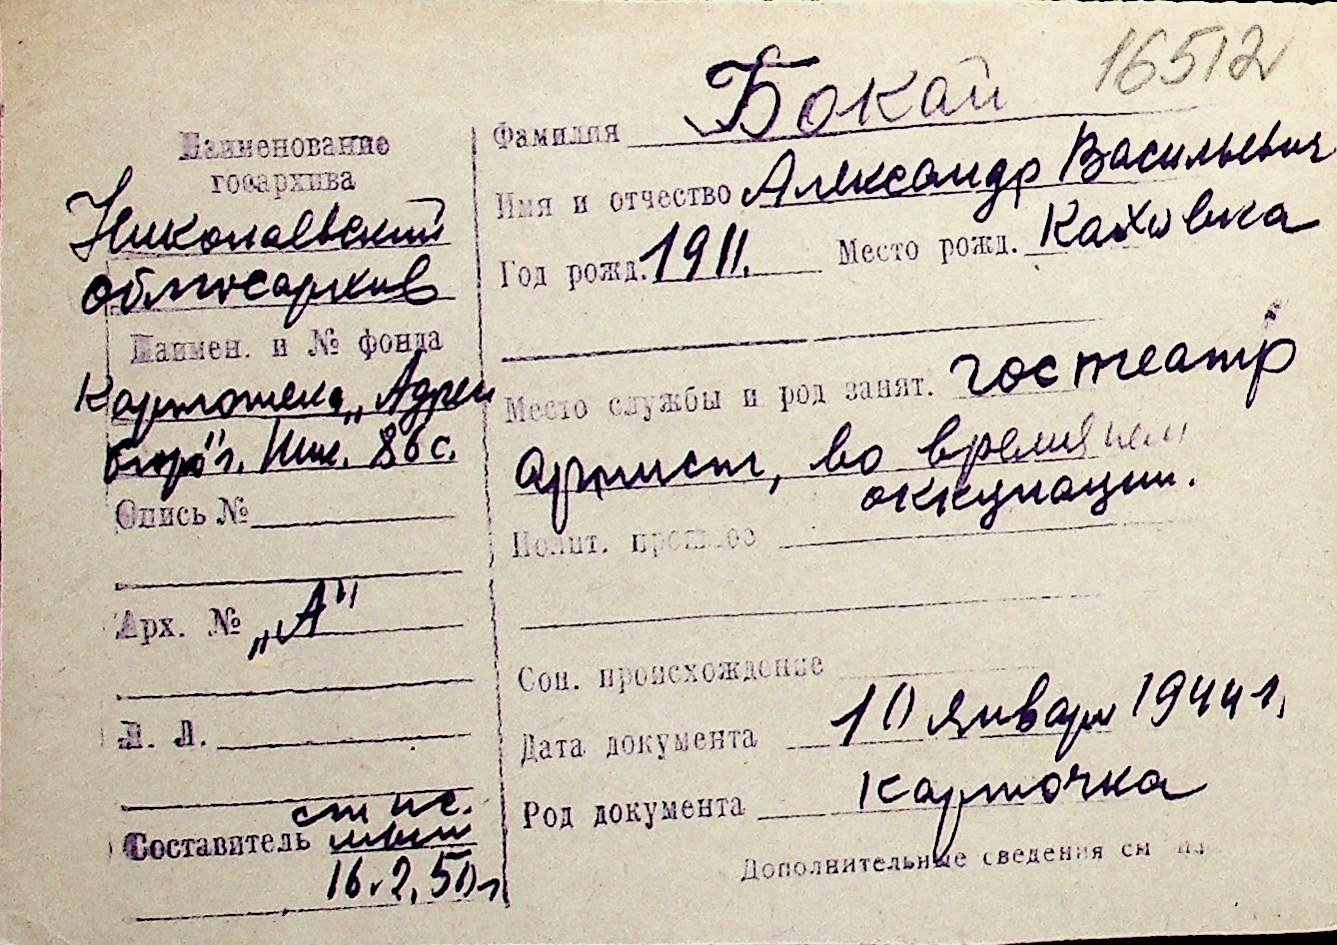 16512
Наименование
госархива
Николаевский
облгосархив
Наимен. и № фонда
Картотека „Адрес
бюро" г. Ник. 86 с.
Опись №
Арх. № „А"
Л. Л.
Составитель
16.2.50 г
Фамилия Бокай
Имя и отчество Александр Васильевич
Год рожд. 1911. Место рожд. Каховка
Место службы и род занят. гостеатр
артист, во время
оккупации.
Полит. прошлое
Соц. происхождение
Дата документа 10 января 1944 г.
Род документа карточка
Дополнительные сведения см